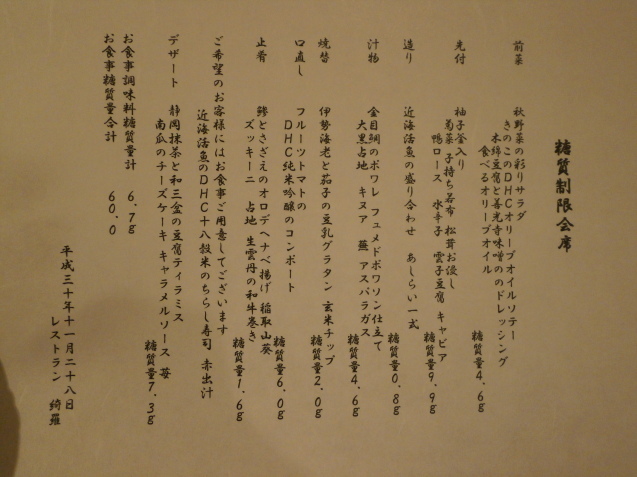 糖質制限会席
前菜
秋野菜の彩りサラダ
きのこのDHCオリーブオイルソテー
木綿豆腐と善光寺味噌ののドレッシング
食べるオリーブオイル
糖質量4.6g
先付
柚子釜入り
菊菜 子持ち若布 松茸お浸し
鴨ロース 水辛子 雲子豆腐 キャビア
糖質量9.9g
造り
近海活魚の盛り合わせ あしらい一式
糖質量0.8g
汁物
金目鯛のポワレ フュメドポワソン仕立て
大黒占地 キヌア 蕪 アスパラガス
糖質量4.6g
焼替
伊勢海老と茄子の豆乳グラタン 玄米チップ
糖質量2.0g
口直し
フルーツトマトの
DHC純米吟醸のコンポート
糖質量6.0g
止肴
鯵とさざえのオロデヘナベ揚げ 稲取山葵
ズッキーニ 占地 生雲丹の和牛巻き
糖質量1.6g
ご希望のお客様にはお食事ご用意してございます
近海活魚のDHC十八穀米のちらし寿司 赤出汁
デザート
静岡抹茶と和三盆の豆腐ティラミス
南瓜のチーズケーキ キャラメルソース 苺
糖質量7.3g
お食事調味料糖質量計 6.7g
お食事糖質量合計 60.0
平成三十年十一月二十八日
レストラン 綺羅